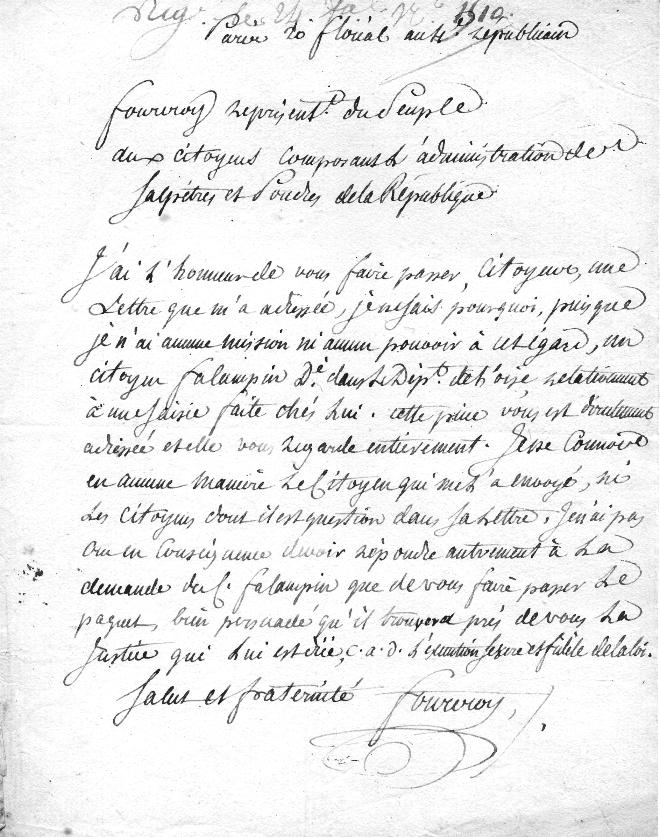 Reg. le 24 N.° 1519.
Paris 20 floréal an 4.e républicain
fourcroy représent.t du Peuple
aux citoyens composant L'administration des
Salpêtres et Poudres de la République
J'ai L'honneur de vous faire passer, Citoyens, une
Lettre que m'a adressée, je ne sais pourquoi, puisque
je n'ai aucune mission ni aucun pouvoir à cet égard, un
citoyen falampin D.é dans Le Dép.t de l'oise, relativement
à une Saisie faite chés Lui. cette pièce vous est
adressée et elle vous regarde entièrement. Je ne Connois
en aucune manière Le Citoyen qui me L'a envoyé, ni
Les citoyens dont il est question dans Sa Lettre, Je n'ai pas
Cru en Conséquence devoir répondre autrement à La
demande du C. falampin que de vous faire passer Le
paquet, bien persuadé qu'il trouvera près de vous La
Justice qui Lui est dûe, c. a. d. L'exécution Sévère et fidèle de la loi.
Salut et fraternité fourcroy,